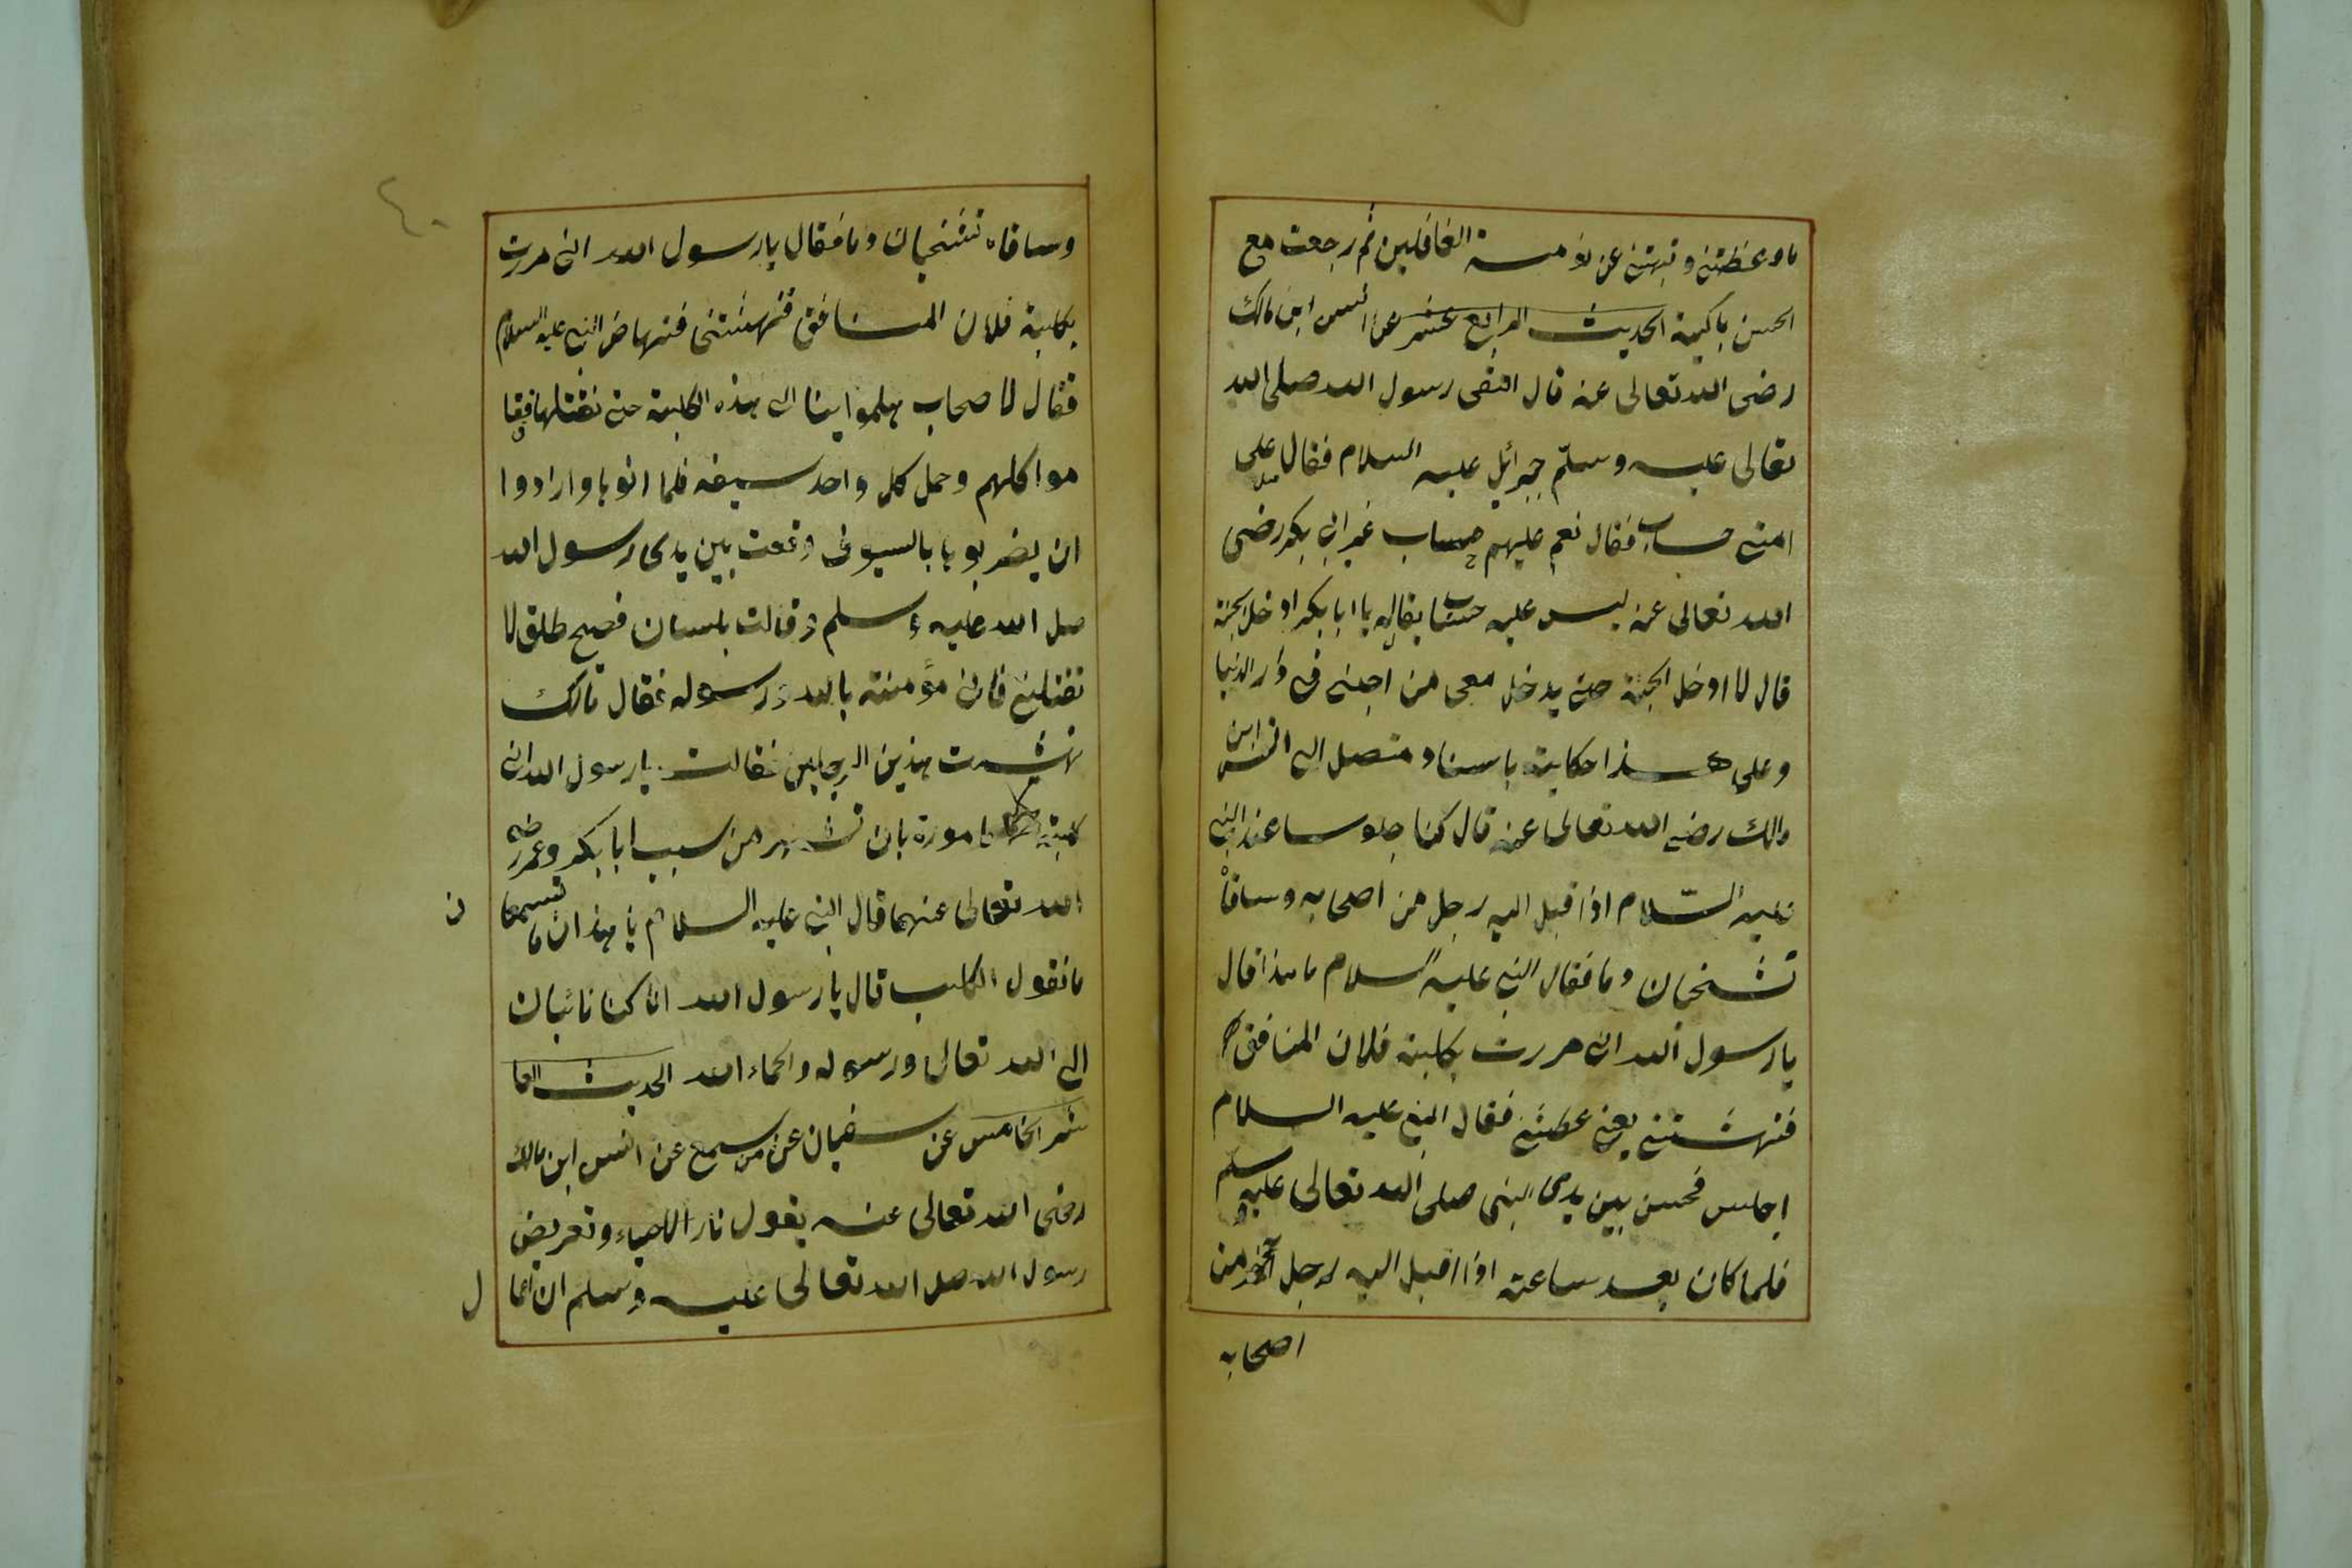 ما وعظتنى ونبهتنى عن نومة الغافلين ثم رجعت مع
الحسن باكية الحديث الرابع عشر عن انس ابن مالك
رضى الله تعالى عنه قال التقى رسول الله صلى الله
تعالى عليه وسلّم جبرائيل عليه السلام فقال على
امتى حساب فقال نعم عليهم حساب غير ابى بكر رضى
الله تعالى عنه ليس عليه حساب يقال له يا ابا بكر ادخل الجنة
قال لا ادخل الجنة حتى يدخل معى من احبنى فى دار الدنيا
وعلى هذا حكاية باسناد متصل الى انس ابن
مالك رضى الله تعالى عنه قال كنا جلوسا عند النبى
عليه السّلام اذا قبل اليه رجل من اصحابه وساقاه
تشخبان دما فقال النبى عليه السلام ما هذا قال
يا رسول الله انى مررت بكلبة فلان المنافق
فنهشتنى يعنى عضتنى فقال النبى عليه السلام
اجلس فجلس بين يدى النبى صلى الله تعالى عليه وسلم
فلما كان بعد ساعة اذا اقبل اليه رجل آخر من
اصحابه
٤٠
وساقاه تشخبان دما فقال يا رسول الله انى مررت
بكلبة فلان المنافق فنهشتنى فنهاض النبى عليه السلام
فقال لاصحاب هلموا بنا الى هذه الكلبة حتى نقتلها فقا
موا كلهم وحمل كل واحد سيفه فلما اتوها وارادوا
ان يضربوها بالسيوف وقعت بين يدى رسول الله
صلى الله عليه وسلم وقالت بلسان فصيح طلق لا
تقتلنى فانى مؤمنة بالله ورسوله فقال مالك
نهشت هذين الرجلين فقالت يا رسول الله انى
كلبة مامورة بان نهش من سبب ابا بكر وعمر رضى
الله تعالى عنهما قال النبى عليه السلام يا هذان ما تسمعا
ن
ما تقول الكلب قال يا رسول الله انا كنا تائبان
الى الله تعالى ورسوله والحماء الله الحديث العا
شر الخامس عن سفيان عن من سمع عن انس ابن مالك
رضى الله تعالى عنه يقول نار الاحياء وتعريض
رسول الله صلى الله تعالى عليه وسلم ان اعما
ل